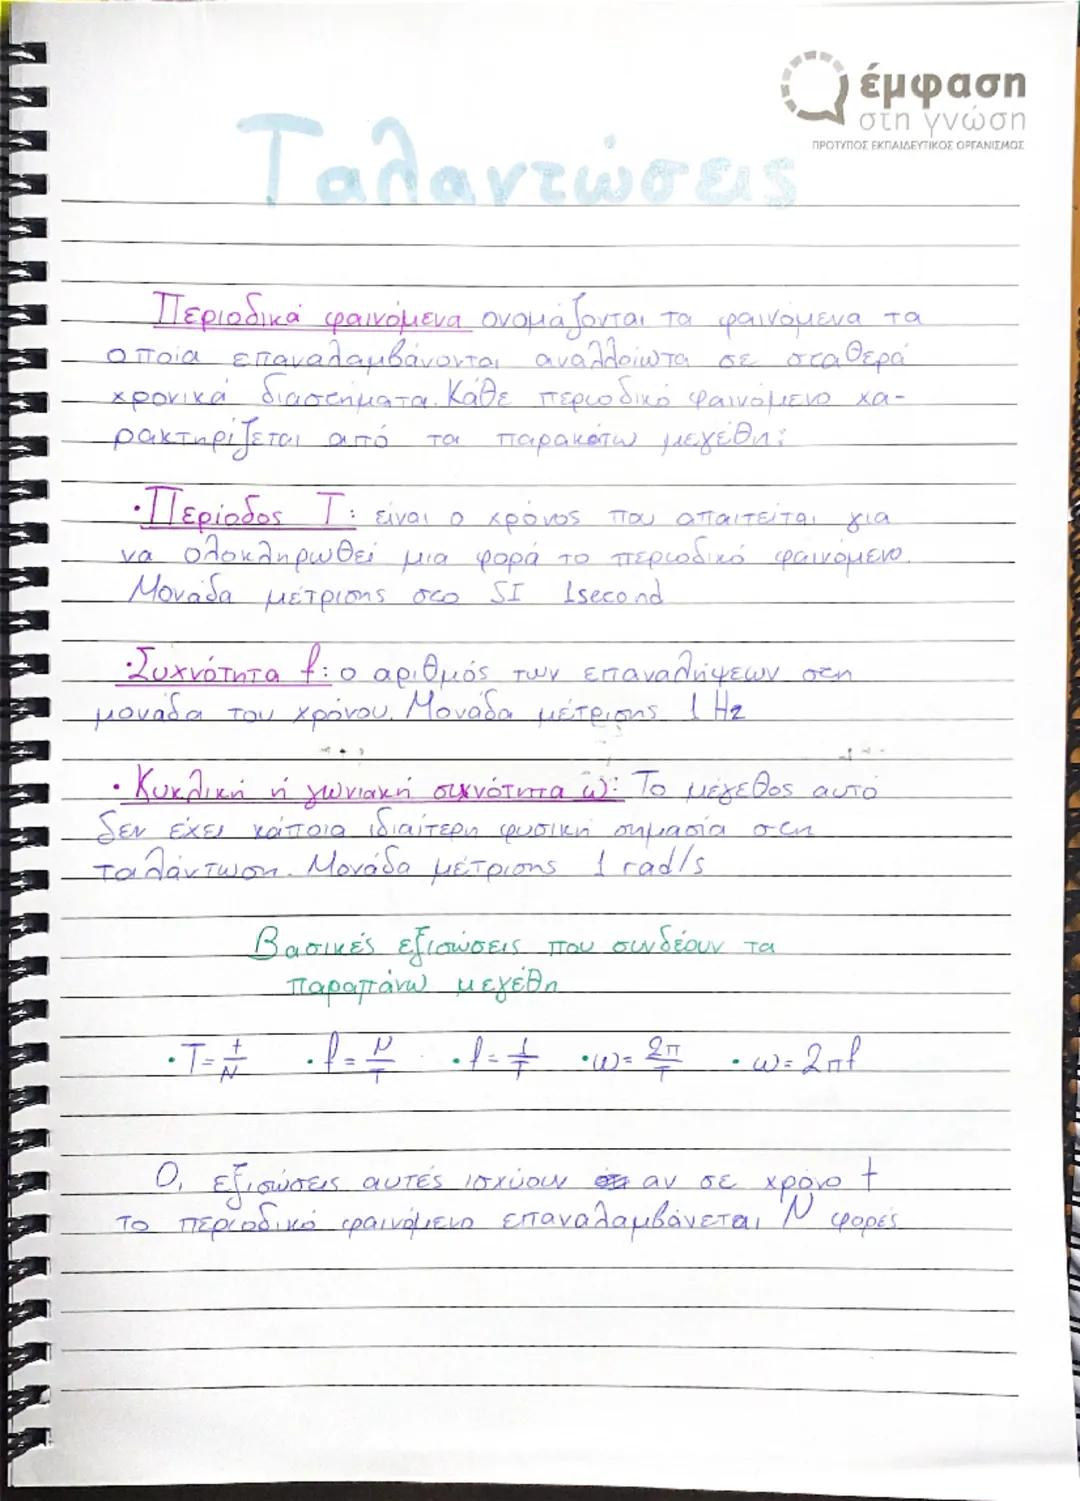 έμφαση
στη γνώση
ΠΡΟΤΥΠΟΣ ΕΚΠΑΙΔΕΥΤΙΚΟΣ ΟΡΓΑΝΙΣΜΟΣ
Ταλαντώσεις
Περιοδικά φαινόμενα ονομάζονται τα φαινόμενα τα
οποία επαναλαμβάνονται αναλλοίωτα σε σταθερά
χρονικά διαστήματα. Κάθε περιοδικό φαινόμενο χα-
ρακτηρίζεται από τα παρακάτω μεγέθη:
•Περίοδος T: είναι ο χρόνος που απαιτείται για
να ολοκληρωθεί μια φορά το περιοδικό φαινόμενο.
Μονάδα μέτρισης στο SI 1second
•Συχνότητα f: ο αριθμός των επαναλήψεων στη
μονάδα του χρόνου. Μονάδα μέτρισης 1 Hz
• Κυκλική ή γωνιακή συχνότητα ω: Το μέγεθος αυτό
δεν έχει κάποια ιδιαίτερη φυσική σημασία στη
ταλάντωση. Μονάδα μέτρισης 1 rad/s
Βασικές εξισώσεις που συνδέουν τα
παραπάνω μεγέθη
•T=t/N •f=N/T •f=1/T •ω=2π/T •ω=2πf
Οι εξισώσεις αυτές ισχύουν αν σε χρόνο t
το περιοδικό φαινόμενο επαναλαμβάνεται N φορές